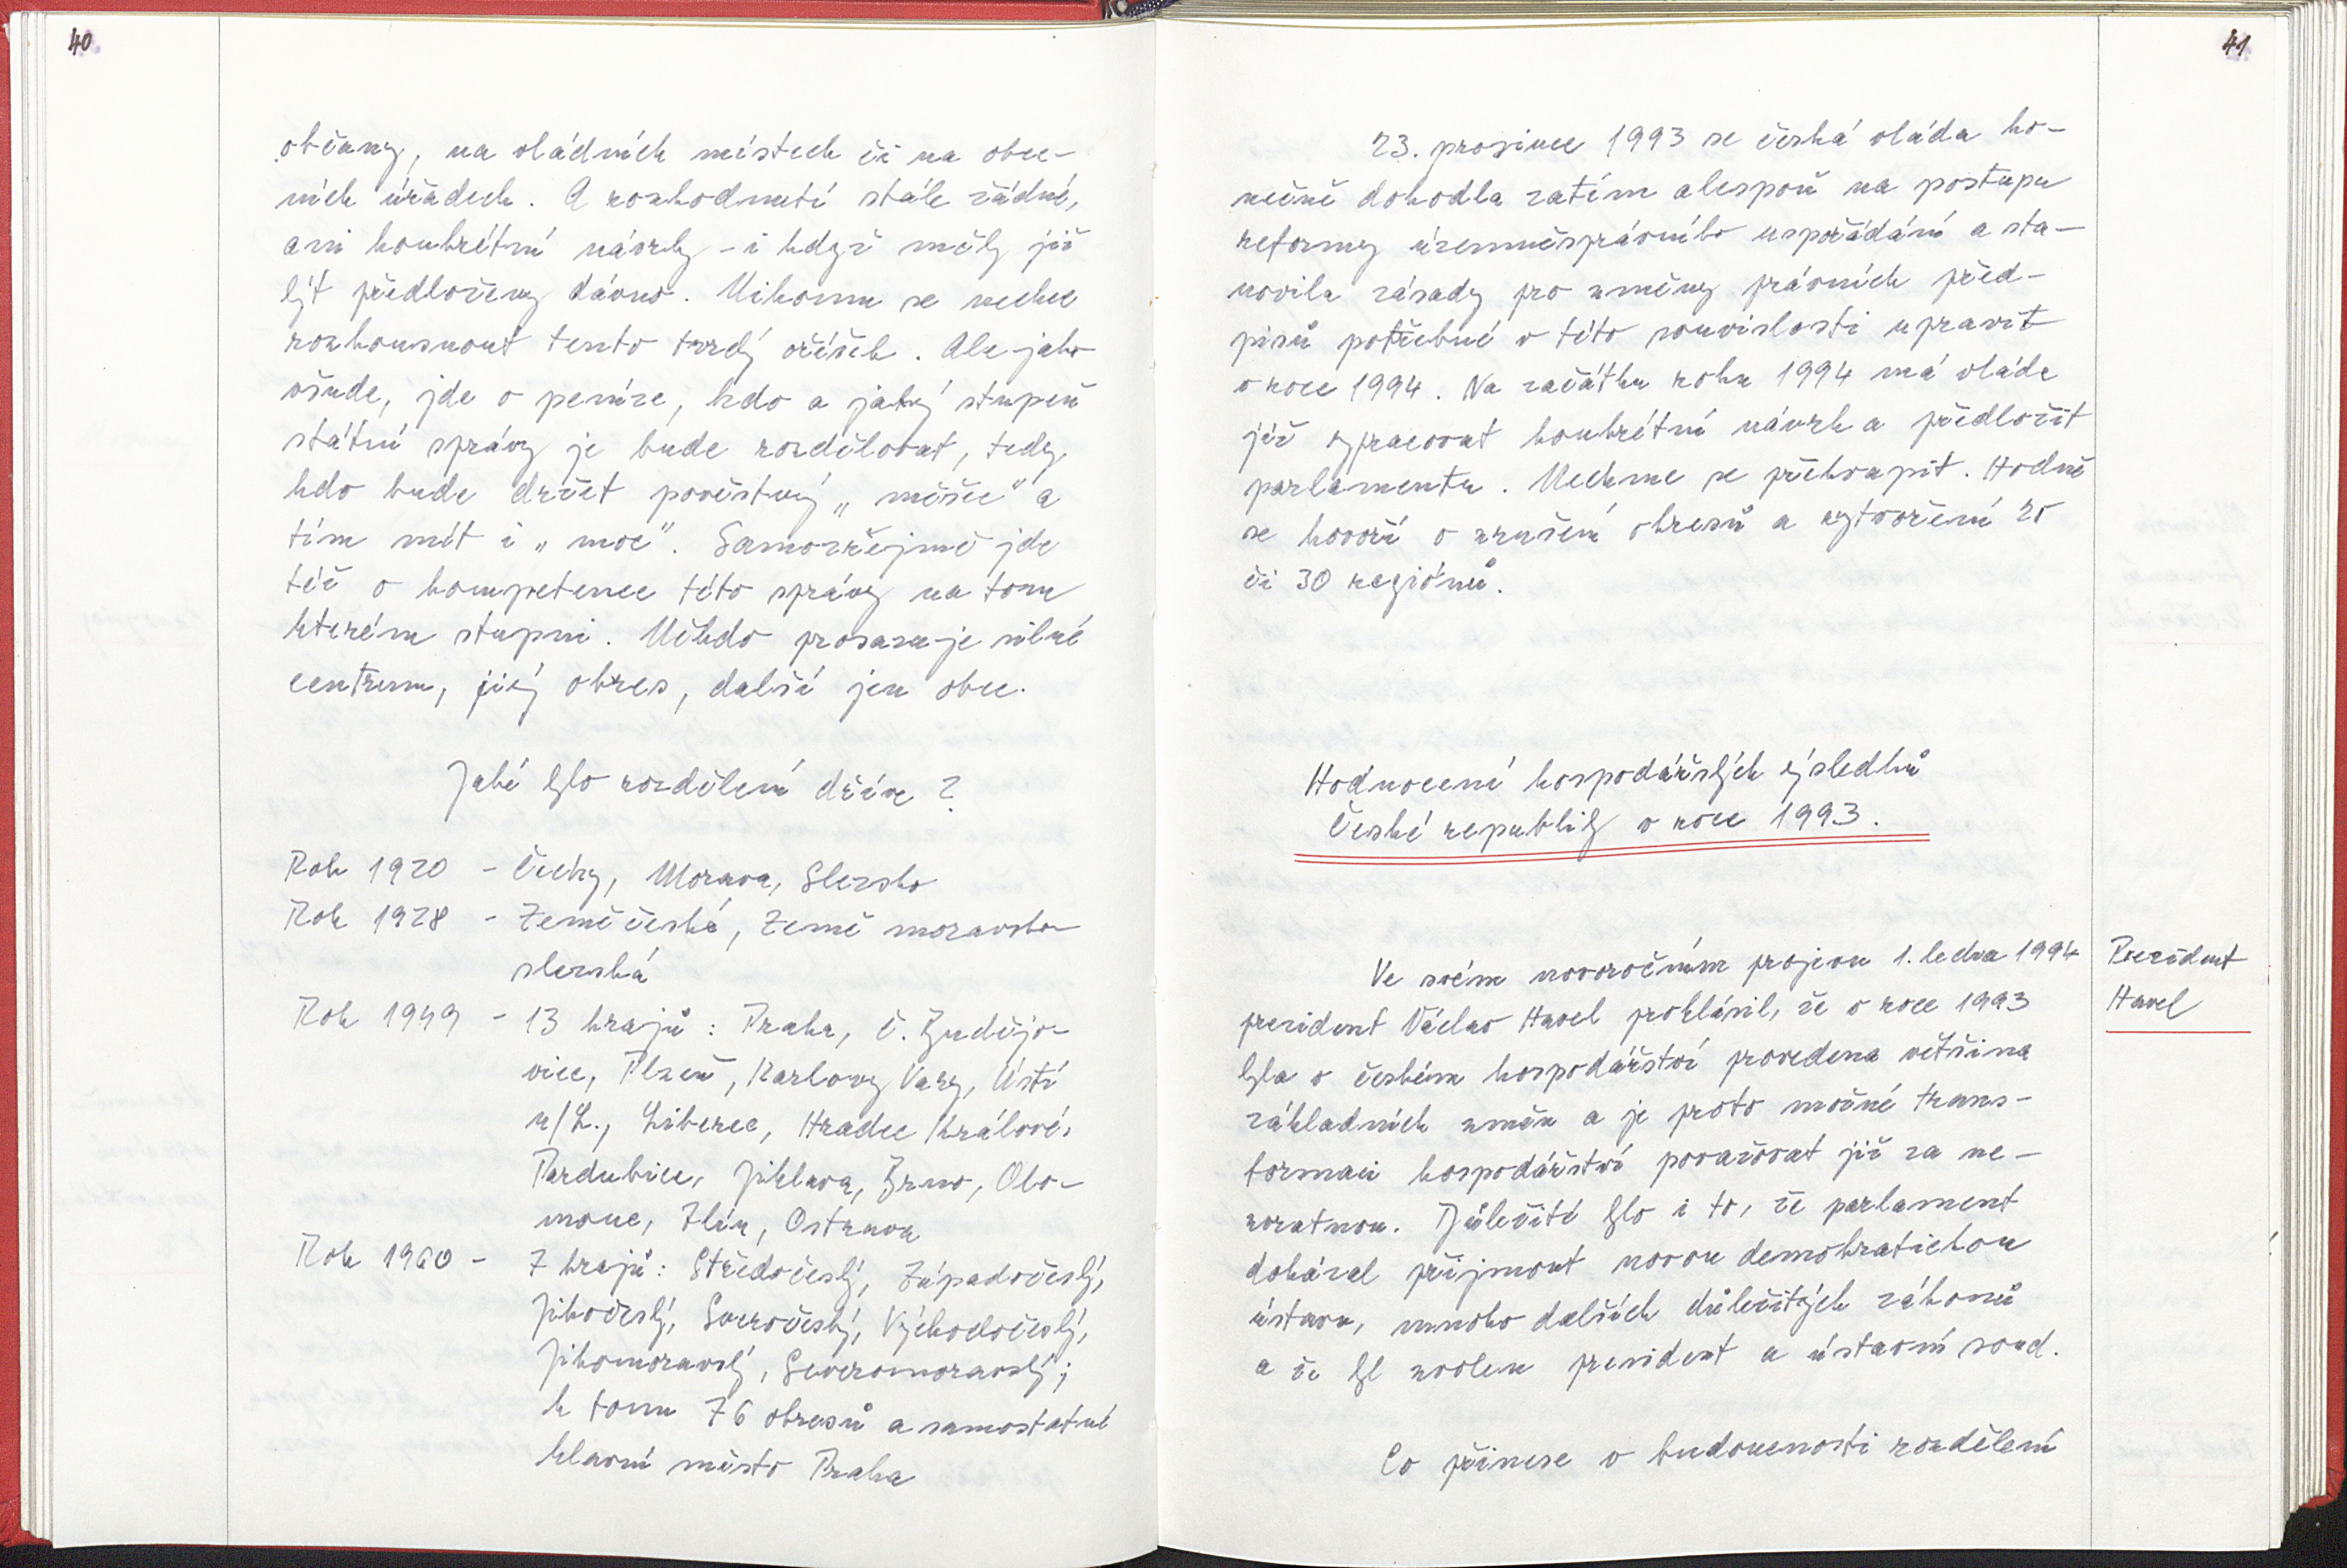 40
občany, na vládních místech či na obec-
ních úřadech. A rozhodnutí stále žádné,
ani konkrétní návrhy - i když měly již
být předloženy dávno. Nikomu se nechce
rozkousnout tento tvrdý oříšek. Ale jako
všude, jde o peníze, kdo a jaký stupeň
státní správy je bude rozdělovat, tedy
kdo bude držet pověstný „měšec" a
tím mít i „moc". Samozřejmě jde
též o kompetence této správy na tom
kterém stupni. Někdo prosazuje silné
centrum, jiný okres, další jen obec.
Jaké bylo rozdělení dříve ?
Rok 1920 - Čechy, Morava, Slezsko
Rok 1928 - Země česká, Země moravsko
slezská
Rok 1949 - 13 krajů : Praha, Č. Budějo-
vice, Plzeň, Karlovy Vary, Ústí
n/L., Liberec, Hradec Králové,
Pardubice, Jihlava, Brno, Olo-
mouc, Zlín, Ostrava
Rok 1960 - 7 krajů: Středočeský, Západočeský,
Jihočeský, Severočeský, Východočeský,
Jihomoravský, Severomoravský;
k tomu 76 okresů a samostatné
hlavní město Praha
41
23. prosince 1993 se česká vláda ko-
nečně dohodla zatím alespoň na postupu
reformy územněsprávního uspořádání a sta-
novila zásady pro změny právních před-
pisů potřebné v této souvislosti upravit
v roce 1994. Na začátku roku 1994 má vláda
již vypracovat konkrétní návrh a předložit
parlamentu. Nechme se překvapit. Hodně
se hovoří o zrušení okresů a vytvoření 25
či 30 regiónů.
Hodnocení hospodářských výsledků
České republiky v roce 1993.
Ve svém novoročním projevu 1. ledna 1994
president Václav Havel prohlásil, že v roce 1993
byla v českém hospodářství provedena většina
základních změn a je proto možné trans-
formaci hospodářství považovat již za ne-
zvratnou. Důležité bylo i to, že parlament
dokázal přijmout novou demokratickou
ústavu, mnoho dalších důležitých zákonů
a že byl zvolen president a ústavní soud.
Prezident
Havel
Co přinese v budoucnosti rozdělení